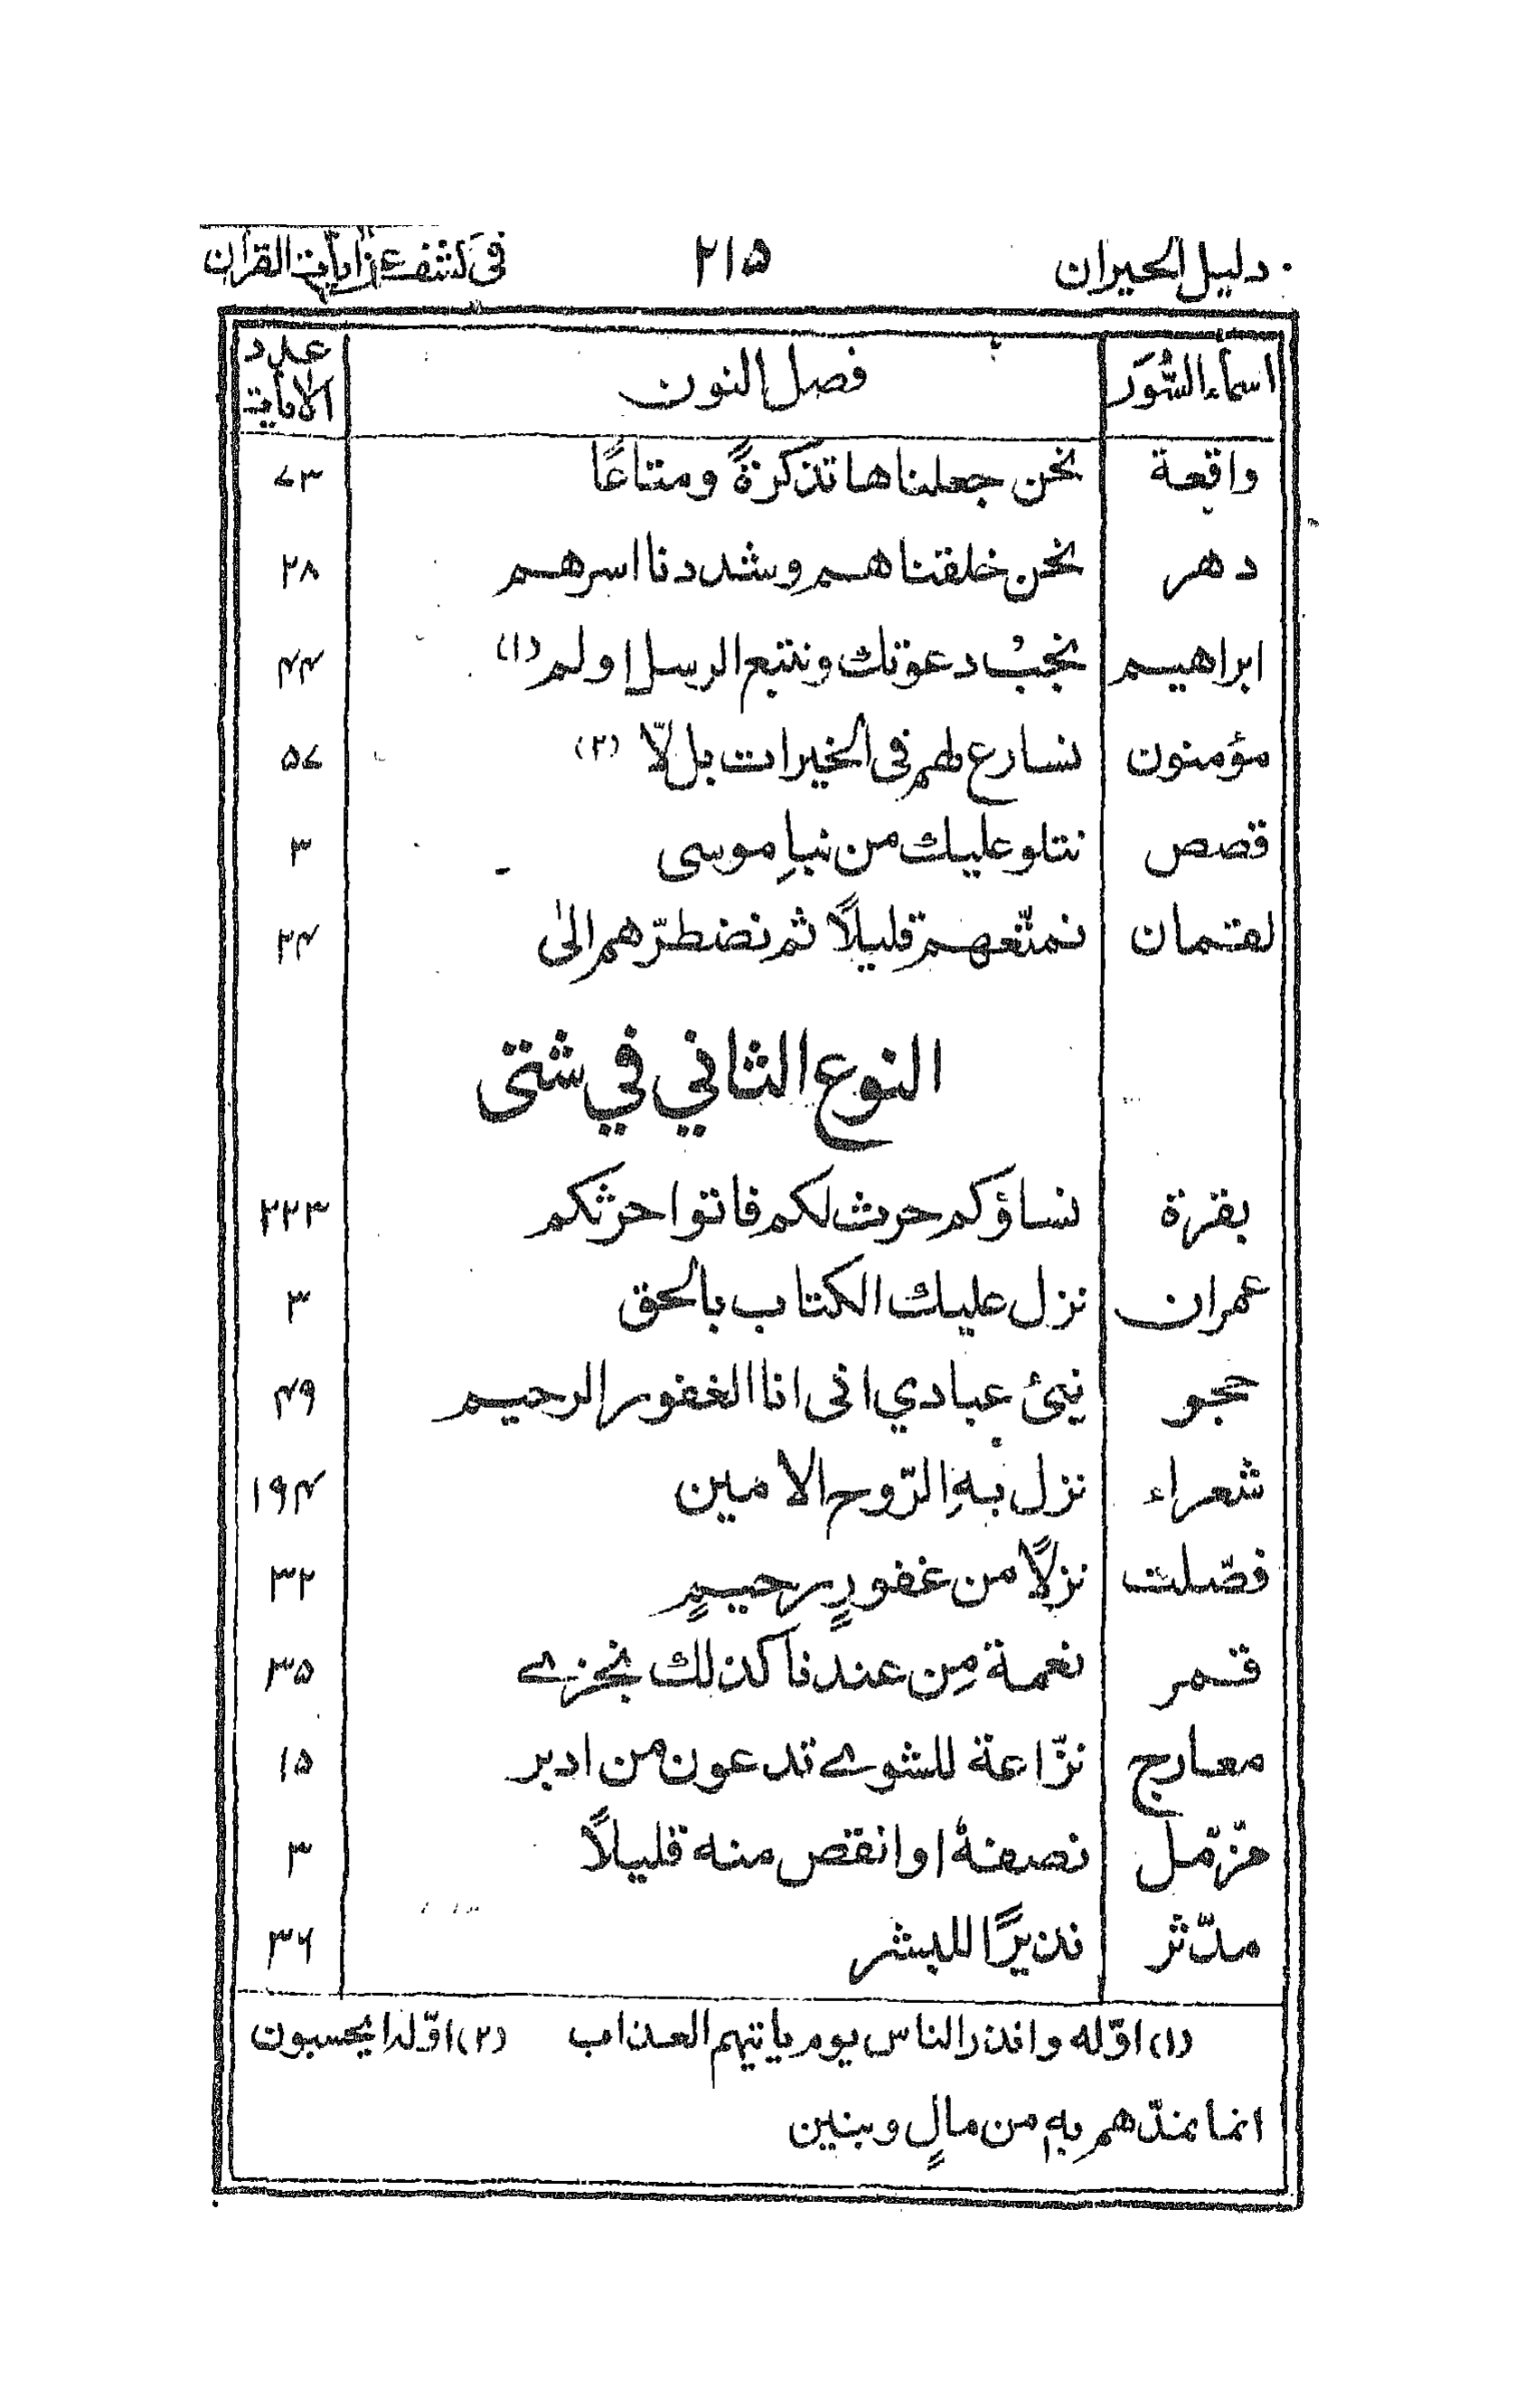 دليل الحيران ٢١٥ فى كشف عن آيات القرآن
اسماء السُّوَر فصل النون عدد الآيات
واقعة نحن جعلناها تذكرةً ومتاعًا ٧٣
دهر نحن خلقناهم وشددنا اسرهم ٢٨
ابراهيم نجبْ دعوتك ونتبع الرسل اولم (١) ٤٤
مؤمنون نسارع لهم فى الخيرات بل لّا (٢) ٥٧
قصص نتلو عليك من نباِ موسى ٣
لقمان نمتّعهم قليلًا ثم نضطرّهم الىٰ ٢٤
النوع الثاني في شتى
بقرة نساؤكم حرث لكم فاتوا حرثكم ٢٢٣
عمران نزل عليك الكتاب بالحق ٣
حجر نبئ عبادي انى انا الغفور الرحيم ٤٩
شعراء نزل بهِ الرّوح الامين ١٩٤
فصّلت نزلًا من غفورٍ رحيمٍ ٣٢
قمر نعمة مِن عندنا كذلك نجزے ٣٥
معارج نزّاعة للشوے تدعون من ادبر ١٥
مزّمّل نصفهٗ او انقص منه قليلًا ٣
مدّثر نذيرًا للبشر ٣٦
(١) اوّله وانذر الناس يوم ياتيهم العذاب (٢) اوّله ايحسبون
انما نمدّهم بهٖ من مالٍ وبنين